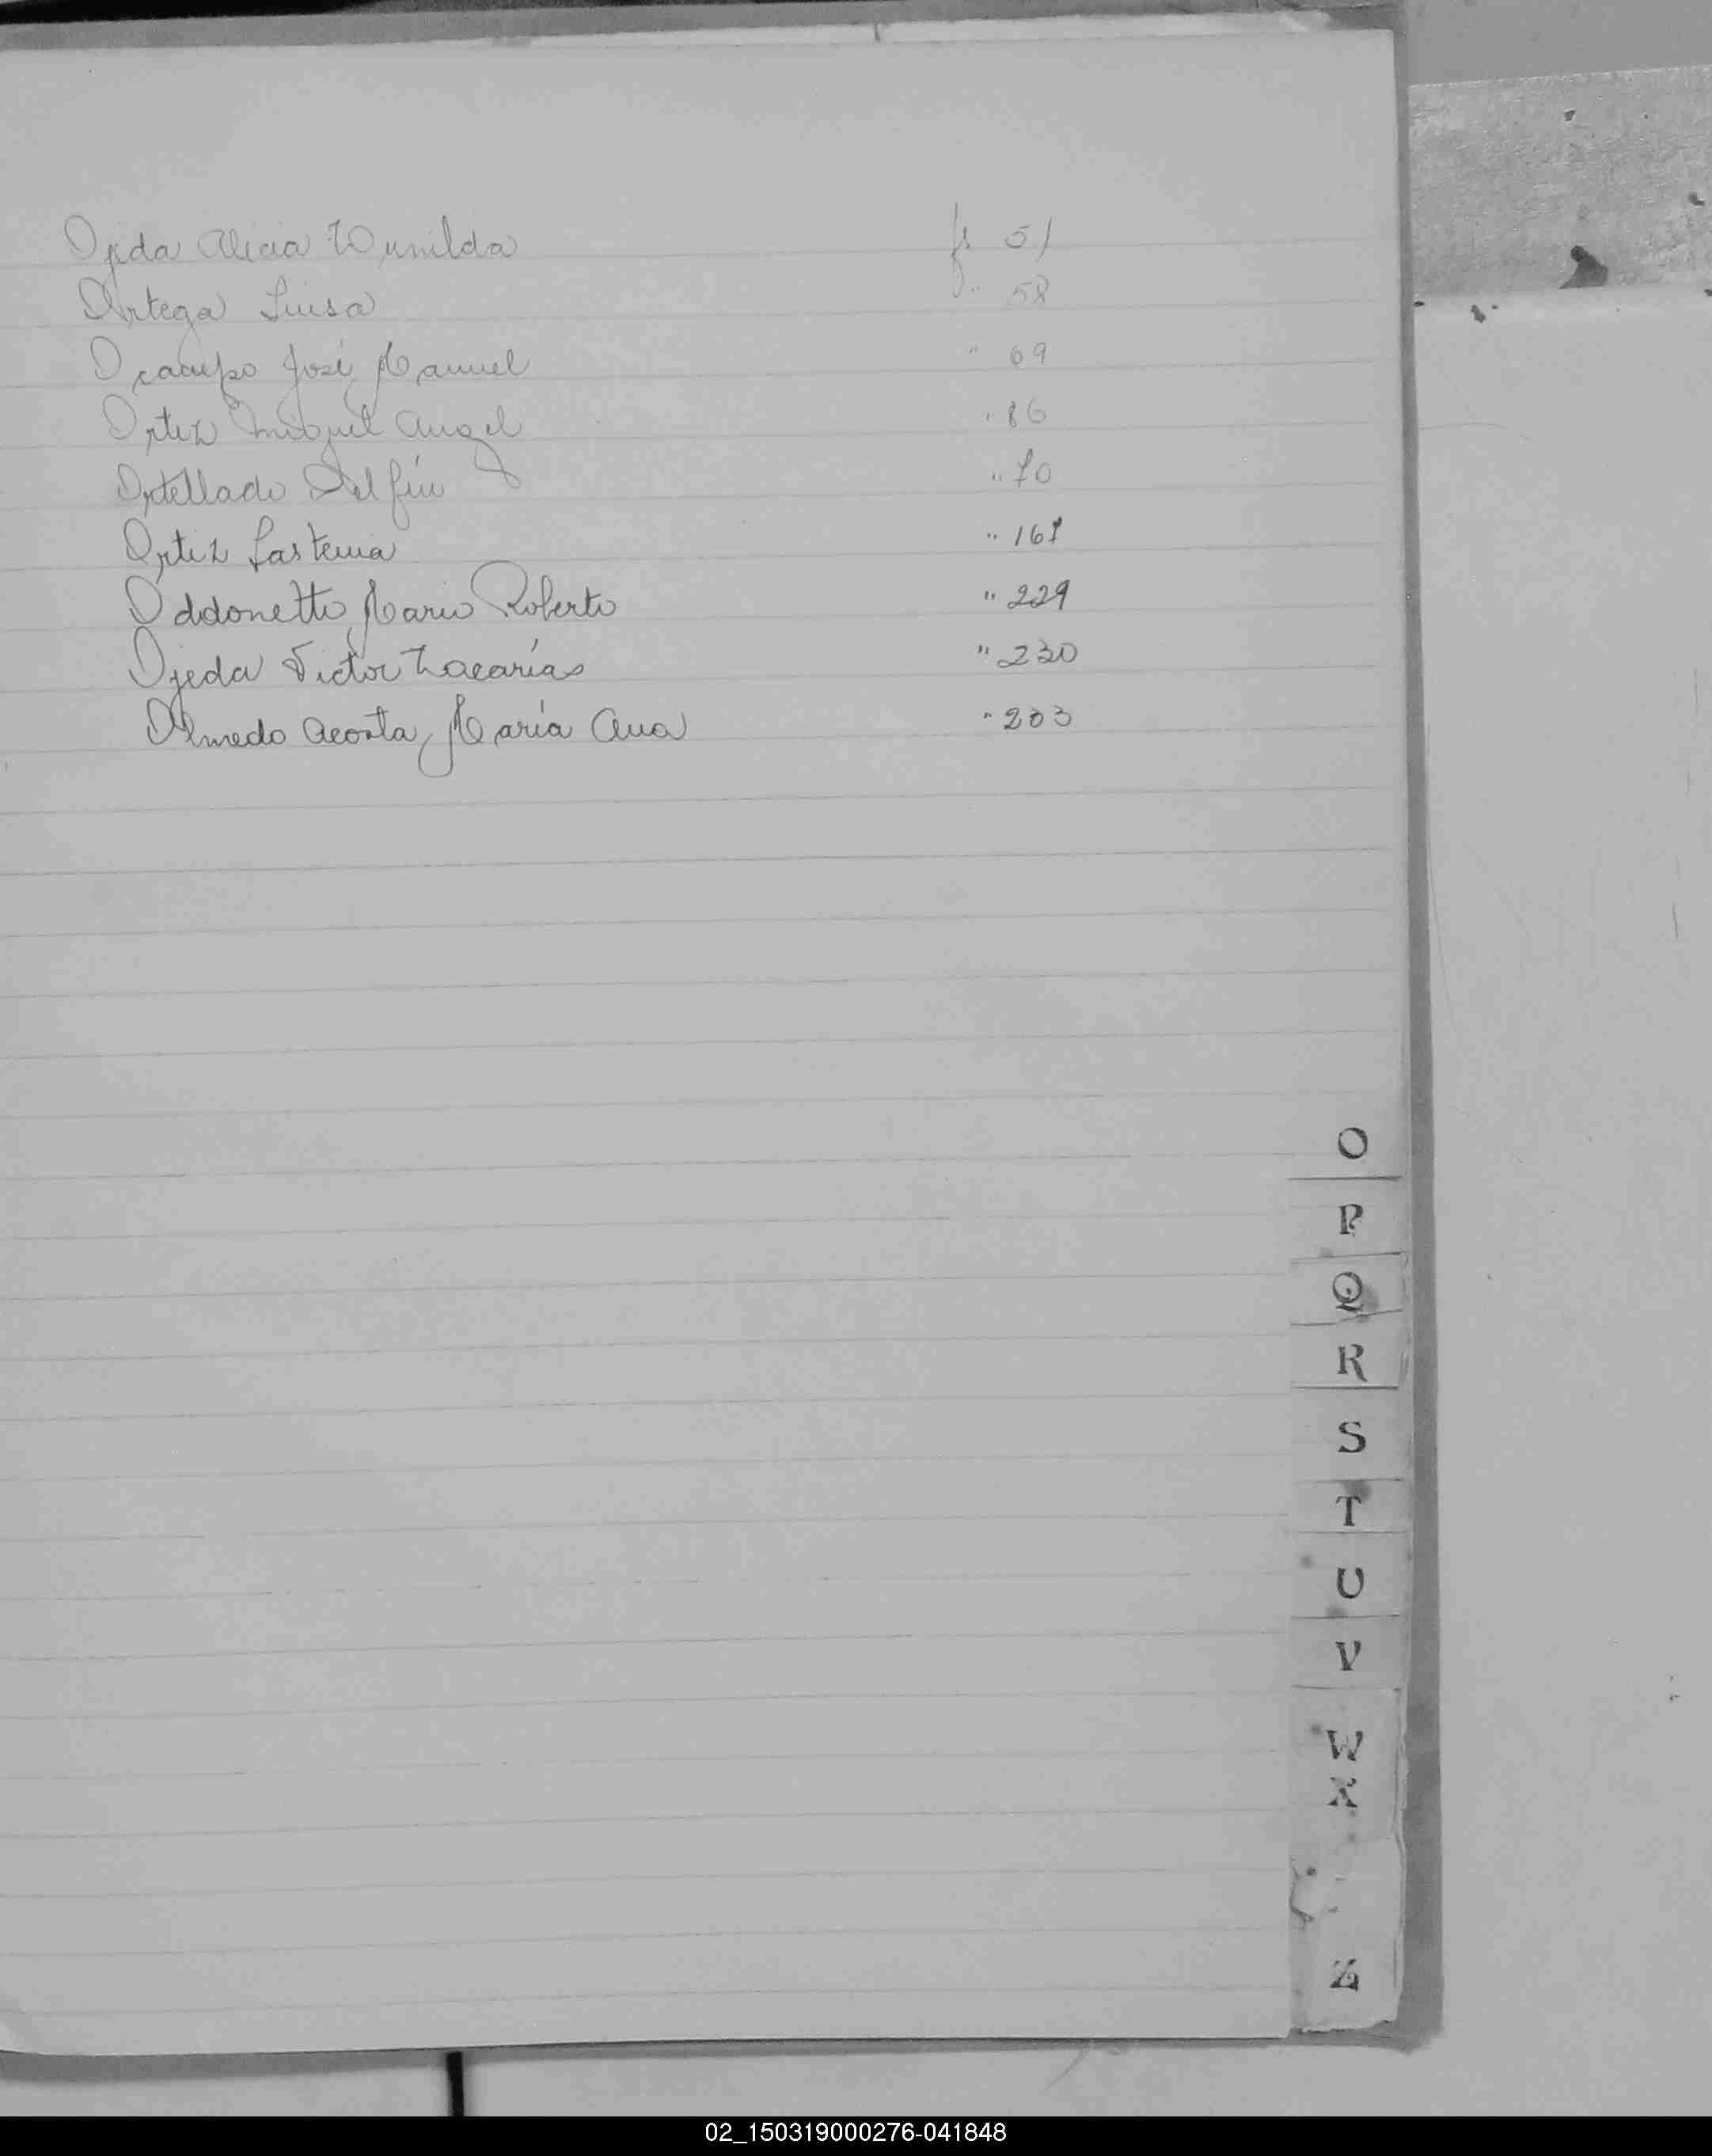 Ojeda Alicia Wunilda fs 51
Ortega Luisa " 58
Ocampo José Manuel " 69
Ortiz Miguel Angel " 86
Ortellado Delfín " 70
Ortiz Lastenia " 167
Oddonetto Mario Roberto " 229
Ojeda Victor Zacarías " 230
Olmedo Acosta, María Ana " 203
O
P
Q
R
S
T
U
V
W
X
Z
02_150319000276-041848